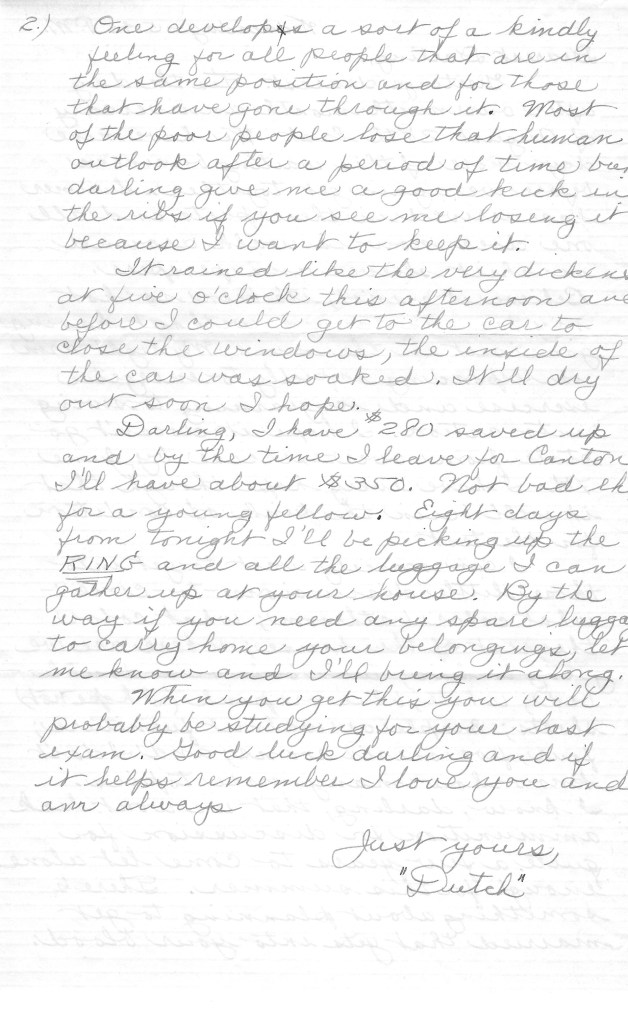 2.) One develops a sort of a kindly
feeling for all people that are in
the same position and for those
that have gone through it. Most
of the poor people lose that human
outlook after a period of time bu
darling give me a good kick in
the ribs if you see me loseing it
because I want to keep it.
It rained like the very dickens
at five o'clock this afternoon and
before I could get to the car to
close the windows, the inside of
the car was soaked. It'll dry
out soon I hope.
Darling, I have $280 saved up
and by the time I leave for Canton
I'll have about $350. Not bad eh
for a young fellow. Eight days
from tonight I'll be picking up the
RING and all the luggage I can
gather up at your house. By the
way if you need any spare lugga
to carry home your belongings, let
me know and I'll bring it along.
When you get this you will
probably be studying for your last
exam. Good luck darling and if
it helps remember I love you and
am always
Just yours,
"Dutch"